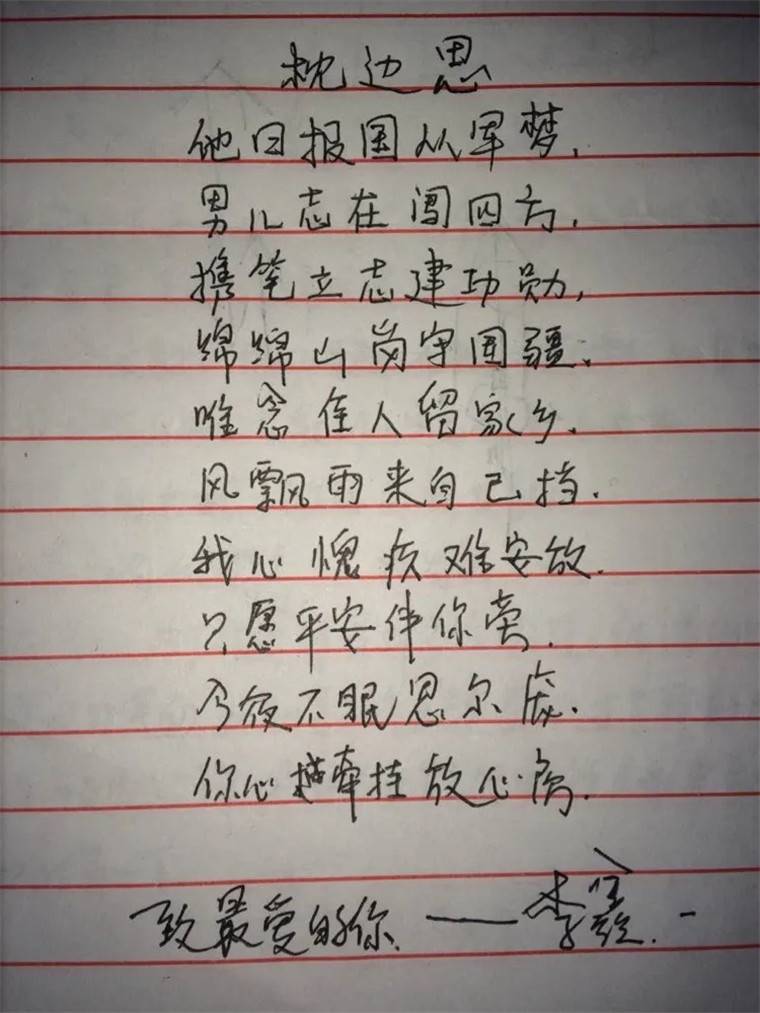 枕边思
他日报国从军梦,
男儿志在闯四方,
携笔立志建功勋,
绵绵山岗守国疆.
唯念佳人留家乡.
风飘雨来自己挡.
我心愧疚难安放.
只愿平安伴你旁.
今夜不眠思尔
你心牵挂放心房.
致最爱的你. ——李